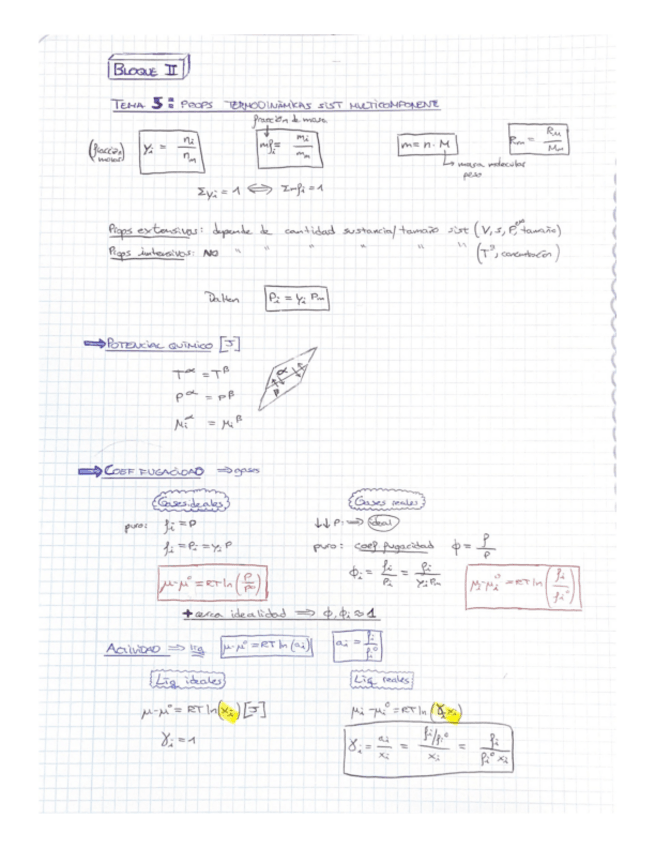 BLOQUE II
TEMA 5: PROPS TERMODINÁMICAS SIST MULTICOMPONENTE
fracción de masa
(fracción molar) yi = ni/nm
mfi = mi/mm
m = n · M
masa molecular
peso
Rm = Ru/Mm
Σyi = 1 ⟺ Σmfi = 1
Props extensivas: depende de cantidad sustancia/tamaño sist (V, s, P, tamaño)
Props intensivas: NO " " " " " " (Tª, concentración)
Dalton Pi = yi Pm
⇒ POTENCIAL QUÍMICO [J]
T^α = T^β
α
β
P^α = P^β
μi^α = μi^β
⇒ COEF. FUGACIDAD ⇒ gases
Gases ideales
Gases reales
puro: fi = P
↓↓ P ⇒ ideal
fi = Pi = yi P
puro: coef fugacidad ϕ = f/P
μ-μ° = RT ln(P/P°)
ϕi = fi/Pi = fi/yi Pm
μi-μi° = RT ln(fi/fi°)
+ cerca idealidad ⇒ ϕ, ϕi ≈ 1
ACTIVIDAD ⇒ liq μ-μ° = RT ln(ai) ai = fi/fi°
Liq ideales
Liq reales
μ-μ° = RT ln(xi) [J]
μi-μi° = RT ln(γi xi)
γi = 1
γi = ai/xi = fi/fi°/xi = fi/fi° xi